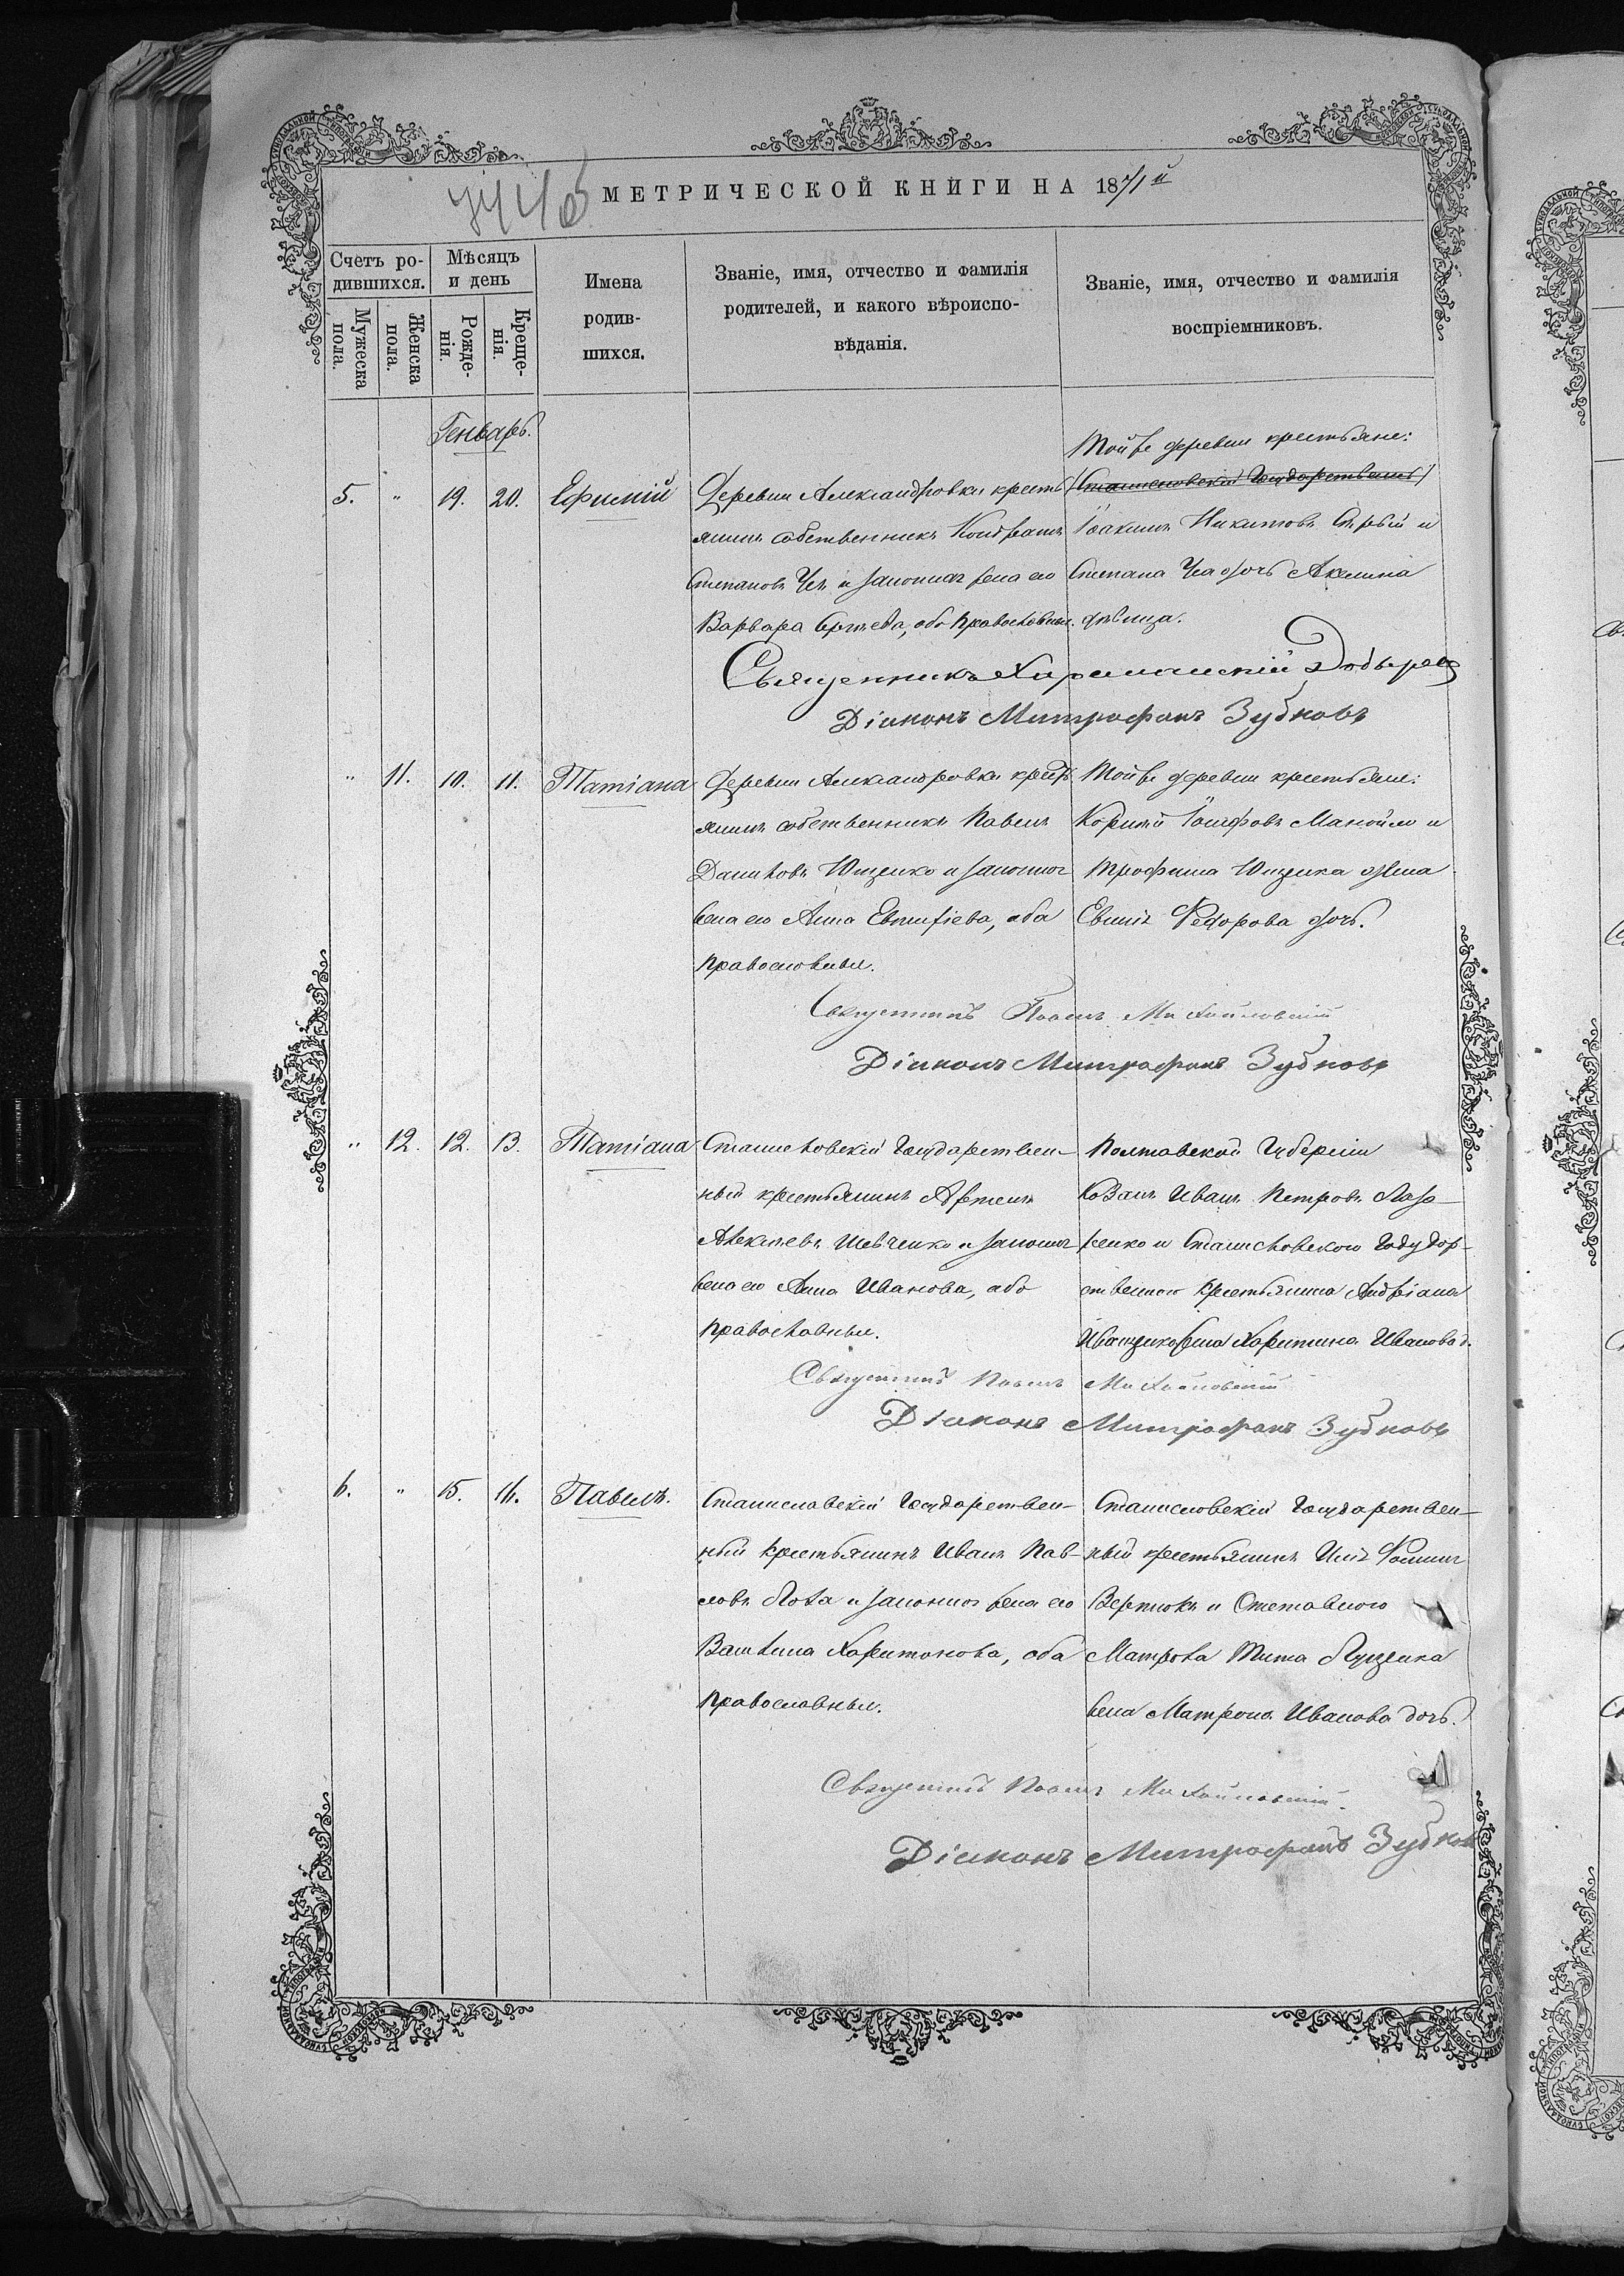 МЕТРИЧЕСКОЙ КНИГИ НА 1871й
Счетъ ро-
дившихся.
Мѣсяцъ
и день
Мужеска
пола.
Женска
пола.
Рожде-
нія.
Креще-
нія.
Имена
родив-
шихся.
Званіе, имя, отчество и фамилія
родителей, и какого вѣроиспо-
вѣданія.
Званіе, имя, отчество и фамилія
воспріемниковъ.
Генварь.
5. " 19. 20. Ефимій
Деревни Александровки кресть
янинъ собственникъ Кондратъ
Степановъ и законная жена его
Варвара, оба православные.
Той же деревни крестьяне:
Станиславскій Государствен
Іоакимъ Никитовъ Сѣрый и
Степана дочь Акилина
дѣвица.
Священникъ
Діаконъ Митрофанъ Зубковъ
" 11. 10. 11. Татіана
Деревни Александровки кресть
янинъ собственникъ Павелъ
Даниловъ Ющенко и законная
жена его Анна, оба
православные.
Той же деревни крестьяне:
Корнилій Іосифовъ Манойло и
Трофима Ющенка жена
Федорова дочь.
Священникъ Павелъ Михайловскій
Діаконъ Митрофанъ Зубковъ
" 12. 12. 13. Татіана
Станиславскій Государствен-
ный крестьянинъ Артемъ
Алексѣевъ Шевченко и законная
жена его Анна Иванова, оба
православные.
Полтавской Губерніи
Козакъ Иванъ Петровъ Лаза-
ренко и Станиславского Государ-
ственного крестьянина Андріана
Иващенко жена Харитина Иванова д.
Священникъ Павелъ Михайловскій
Діаконъ Митрофанъ Зубковъ
6. " 15. 16. Павелъ.
Станиславскій Государствен-
ный крестьянинъ Иванъ Пав-
ловъ Лоза и законная жена его
Васкина Харитонова, оба
православные.
Станиславскій Государствен-
ный крестьянинъ Илія Фоминъ
Вертюкъ и Отставного
Матроза Тита Луценка
жена Матрона Иванова дочь.
Священникъ Павелъ Михайловскій.
Діаконъ Митрофанъ Зубков